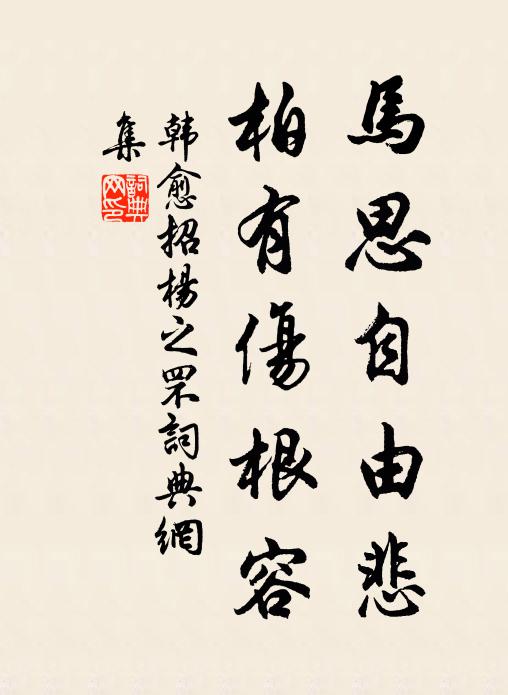 馬思自由悲
柏有傷根容
韓愈招楊之罘詞典網
集
詞典網印